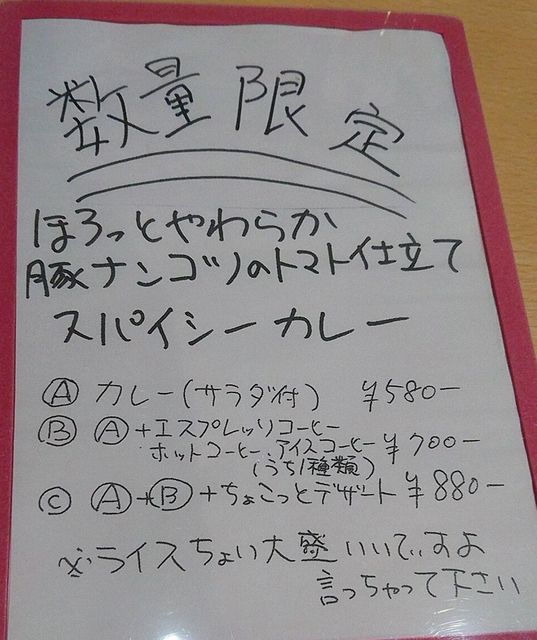 数量限定
ほろっとやわらか
豚ナンコツのトマト仕立て
スパイシーカレー
Ⓐ カレー(サラダ付) ¥580-
Ⓑ Ⓐ+エスプレッソコーヒー
ホットコーヒー、アイスコーヒー ¥700-
(うち1種類)
Ⓒ Ⓐ+Ⓑ+ちょこっとデザート ¥880-
※ライスちょい大盛いいですよ
言っちゃって下さい